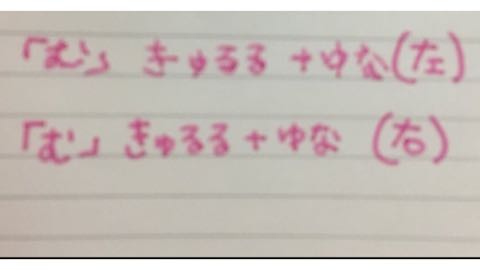 「む」 きゅるる+ゆな(左)
「む」 きゅるる+ゆな (右)